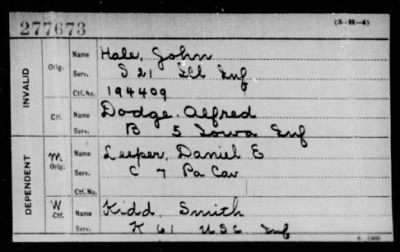 277673 (3-H-4)
INVALID
Orig. Name Hale, John
Serv. S 21 Ill Inf
Ctf. No. 194409
Ctf. Name Dodge, Alfred
Serv. B 5 Iowa Inf
DEPENDENT
M. Orig. Name Leeper, Daniel E
Serv. C 7 Pa Cav
Ctf. No.
W Ctf. Name Kidd, Smith
Serv. K 61 USC Inf